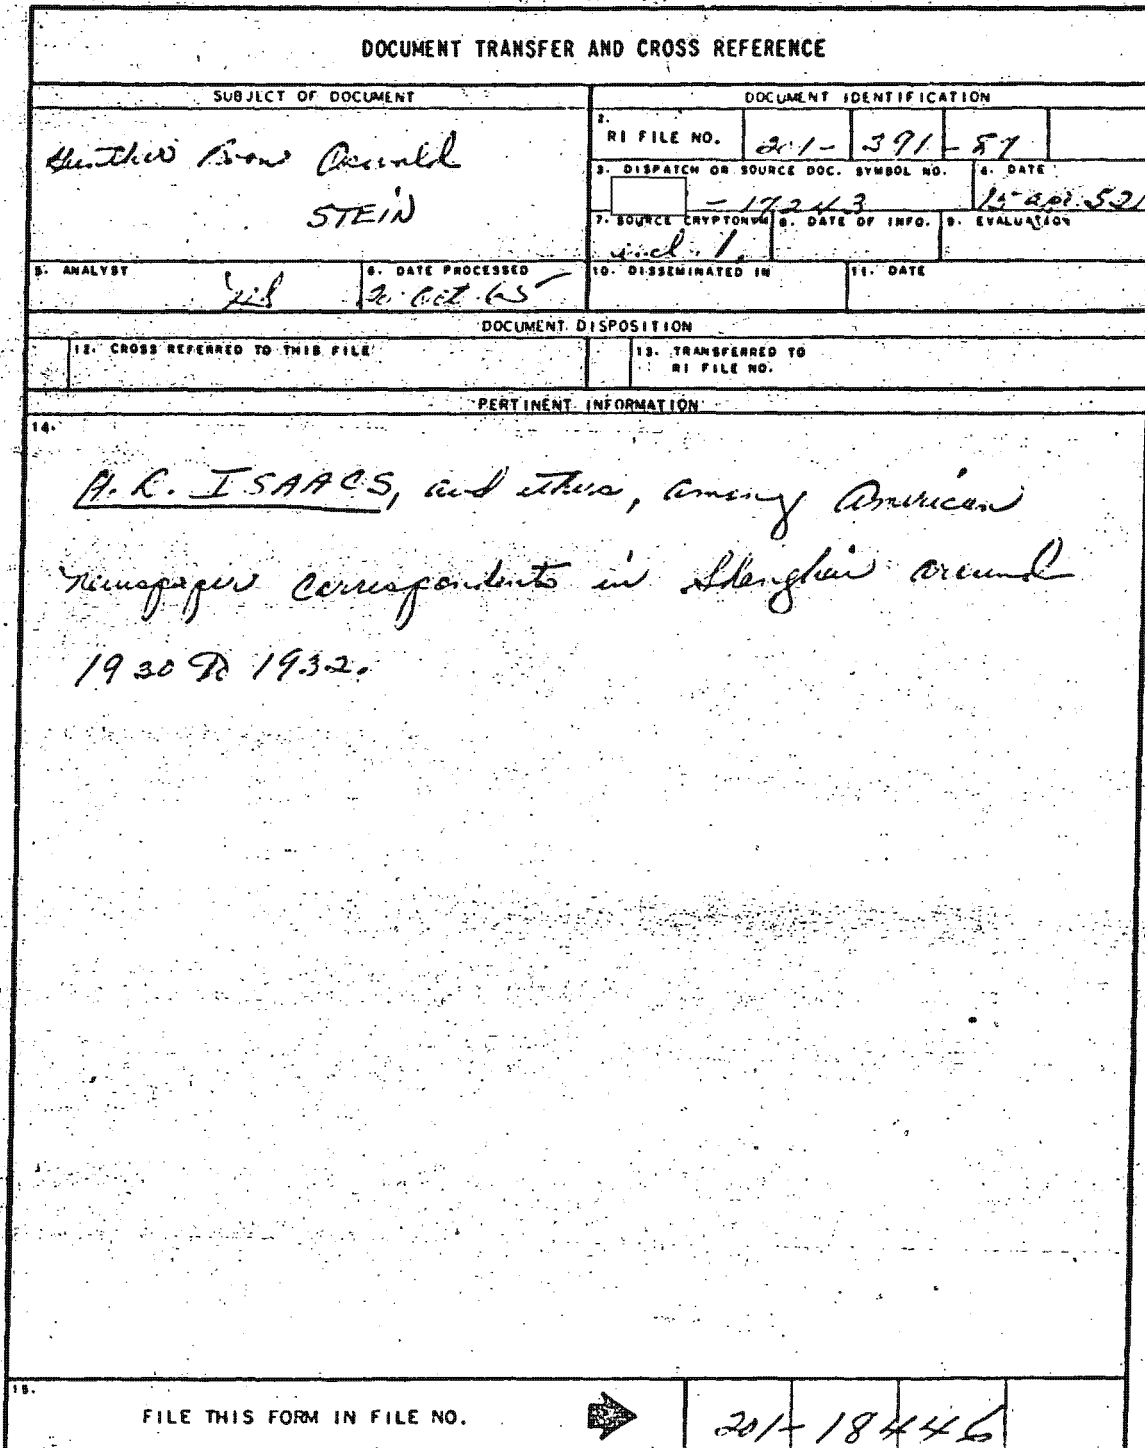 DOCUMENT TRANSFER AND CROSS REFERENCE
SUBJECT OF DOCUMENT
DOCUMENT IDENTIFICATION
Oswald
STEIN
2.
RI FILE NO. 201- 391-57
3. DISPATCH OR SOURCE DOC. SYMBOL NO.
-17243
4. DATE
15 apr 52
7. SOURCE CRYPTONYM
incl. 1.
8. DATE OF INFO.
9. EVALUATION
5. ANALYST
6. DATE PROCESSED
20 Oct 65
10. DISSEMINATED IN
11. DATE
DOCUMENT DISPOSITION
12. CROSS REFERRED TO THIS FILE
13. TRANSFERRED TO
RI FILE NO.
PERTINENT INFORMATION
14.
H.R. ISAACS, and others, among American
newspaper correspondents in Shanghai around
1930 to 1932.
15.
FILE THIS FORM IN FILE NO.
201-18446